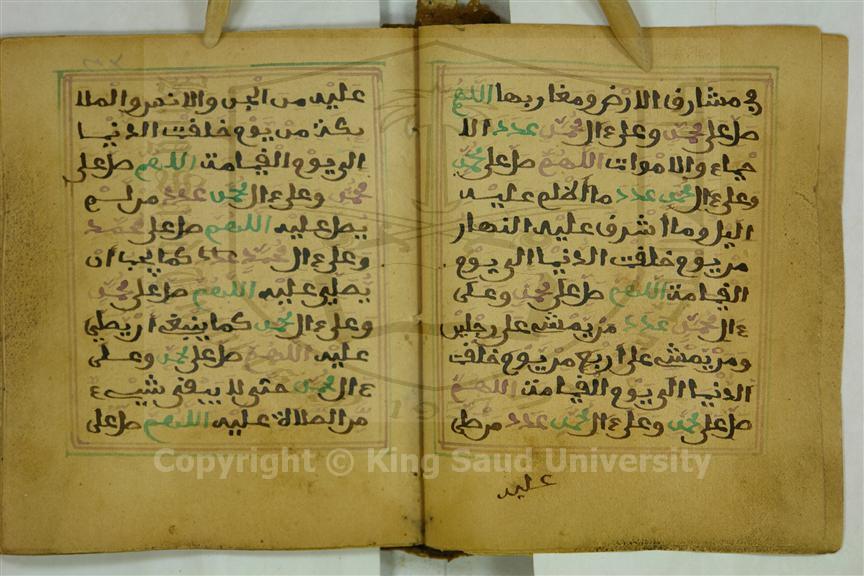 في مشارق الارض ومغاربها اللهم
صل على محمد وعلى ءال محمد عدد الا
حياء والاموات اللهم صل على محمد
وعلى ءال محمد عدد ما أظلم عليه
اليل وما أشرق عليه النهار
من يوم خلقت الدنيا الى يوم
القيامة اللهم صل على محمد وعلى
ءال محمد عدد من يمشي على رجلين
ومن يمشي على أربع من يوم خلقت
الدنيا الى يوم القيامة اللهم
صل على محمد وعلى ءال محمد عدد من صلى
عليه
عليه من الجن والانس والملا
يكة من يوم خلقت الدنيا
الى يوم القيامة اللهم صل على
محمد وعلى ءال محمد عدد من لم
يصل عليه اللهم صل على محمد
وعلى ءال محمد كما يجب ان
يصلى عليه اللهم صل على محمد
وعلى ءال محمد كما ينبغي أن يصلى
عليه اللهم صل على محمد وعلى
ءال محمد حتى لا يبقى شيء
من الصلاة عليه اللهم صل على
Copyright © King Saud University